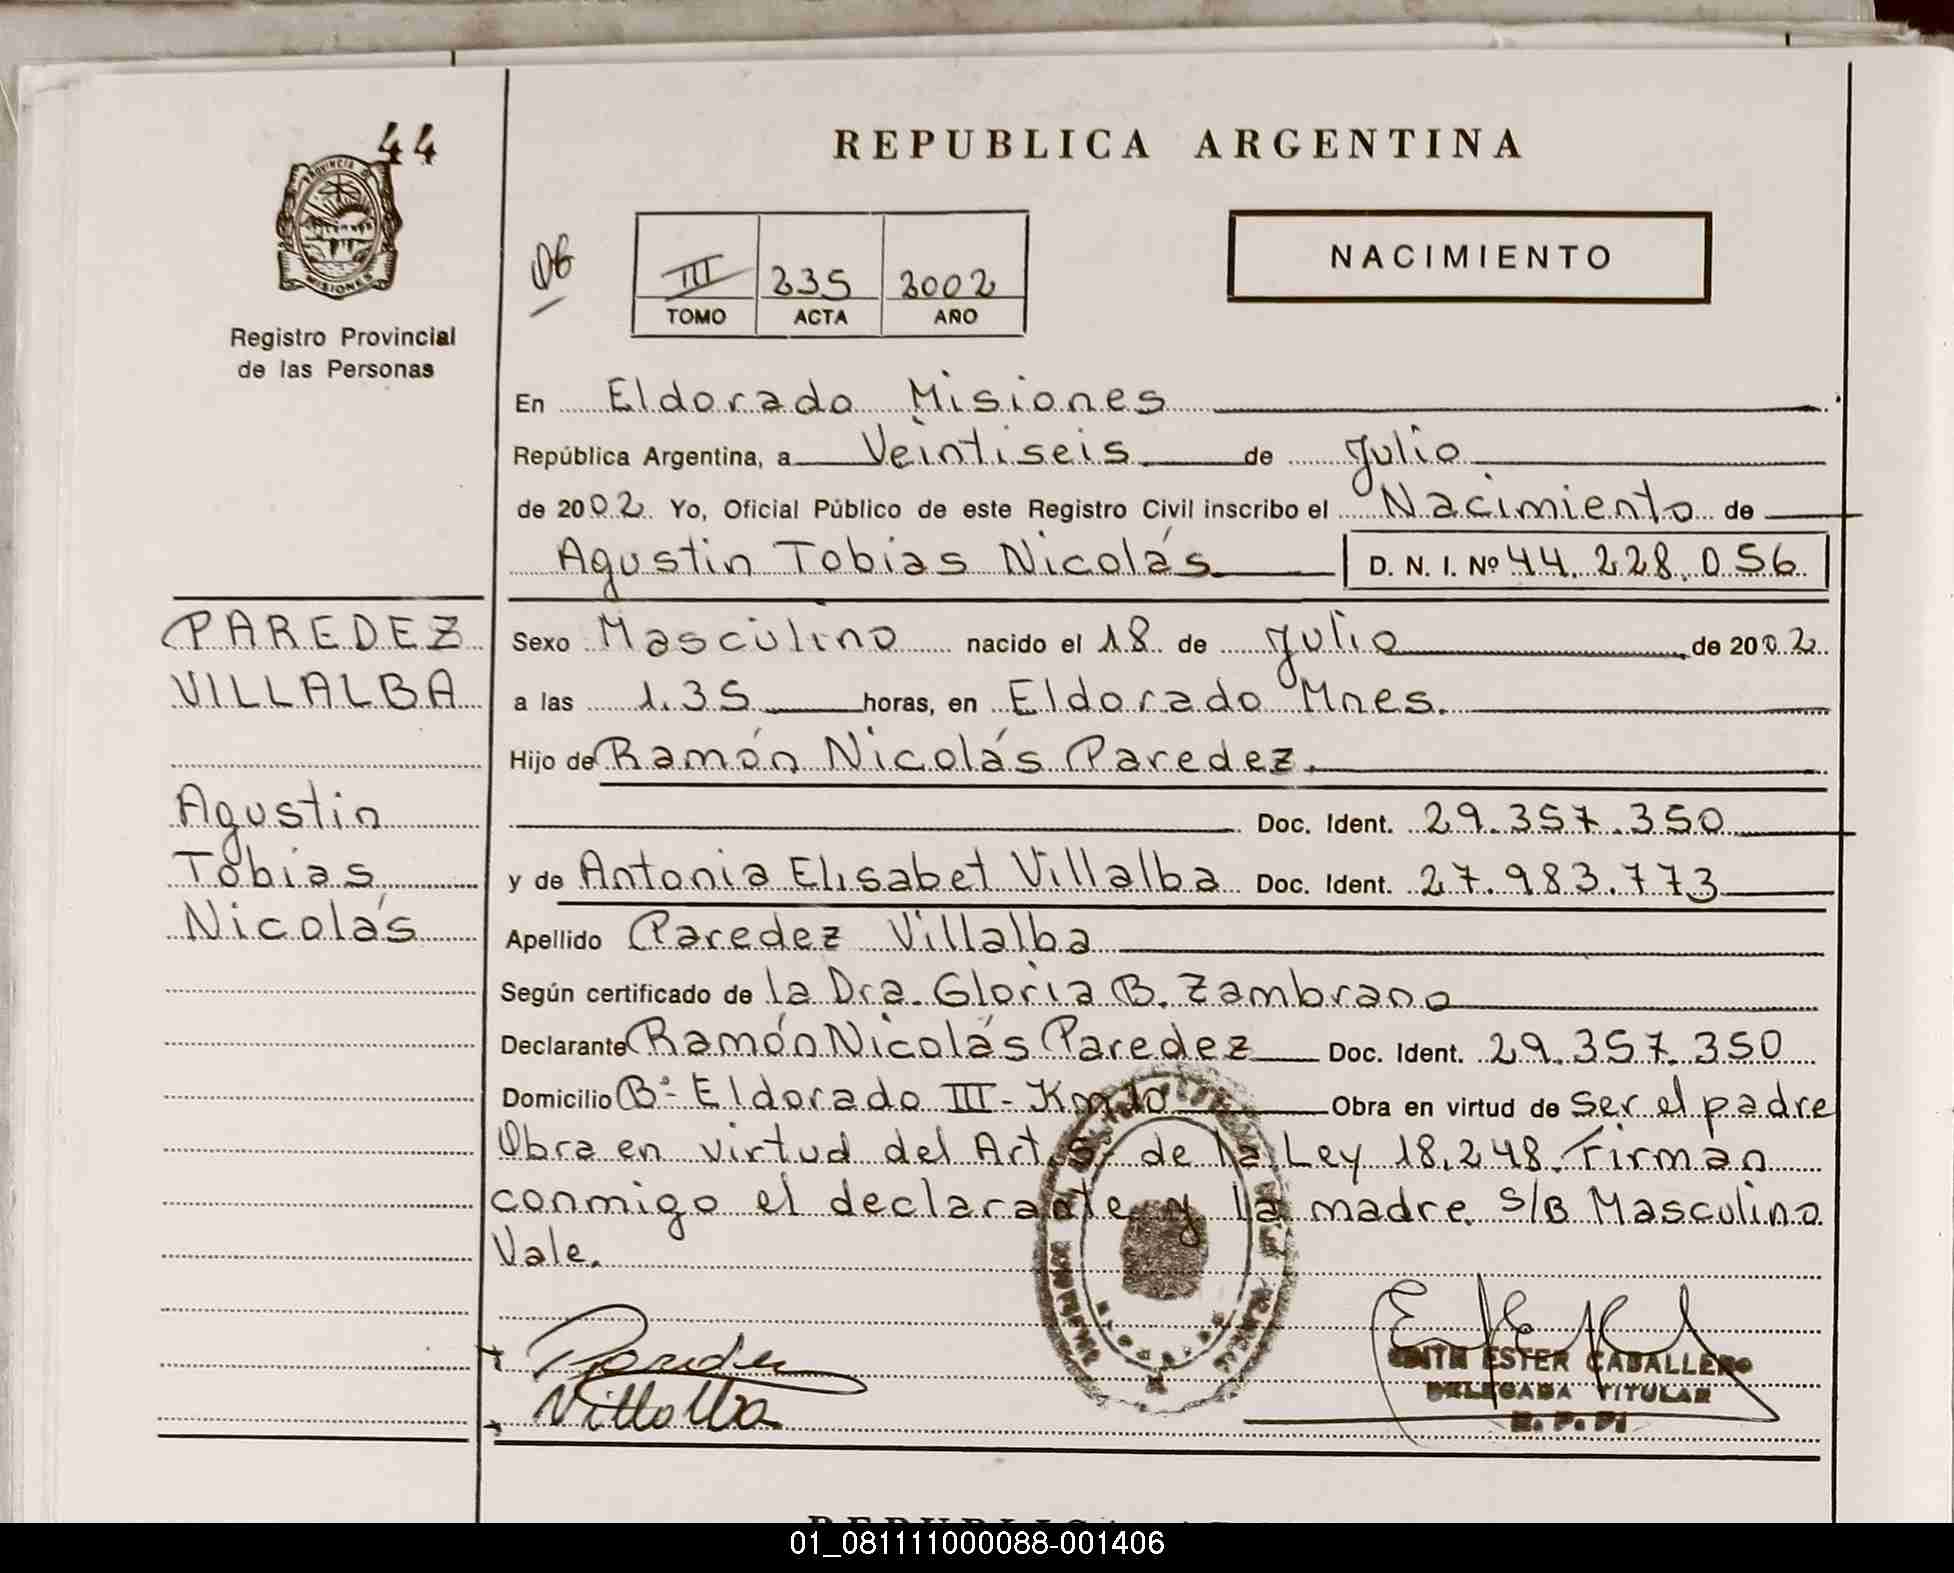 44
PROVINCIA DE
MISIONES
Registro Provincial
de las Personas
REPUBLICA ARGENTINA
NACIMIENTO
III 235 2002
TOMO ACTA AÑO
En Eldorado Misiones
República Argentina, a Veintiseis de Julio
de 2002. Yo, Oficial Público de este Registro Civil inscribo el Nacimiento de
Agustin Tobias Nicolás D. N. I. Nº 44.228.056
PAREDEZ
VILLALBA
Agustin
Tobias
Nicolás
Sexo Masculino nacido el 18 de Julio de 2002
a las 1.35 horas, en Eldorado Mnes.
Hijo de Ramón Nicolás Paredez.
Doc. Ident. 29.357.350
y de Antonia Elisabet Villalba Doc. Ident. 27.983.773
Apellido Paredez Villalba
Según certificado de la Dra. Gloria B. Zambrano
Declarante Ramón Nicolás Paredez Doc. Ident. 29.357.350
Domicilio Bº Eldorado III - Km 10 Obra en virtud de ser el padre
Obra en virtud del Art. 5 de la Ley 18.248. Firman
conmigo el declarante y la madre. S/B Masculino
Vale.
Paredez
Villalba
EDITH ESTER CABALLERO
DELEGADA TITULAR
R. P. P.
01_081111000088-001406